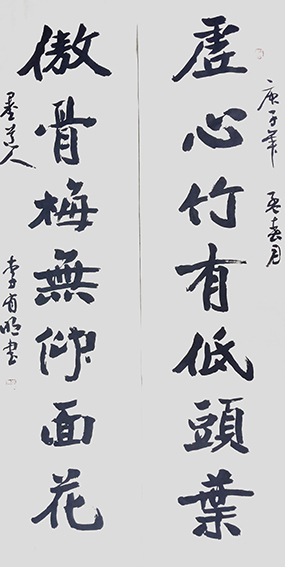 庚子年 孟春月
虚心竹有低頭葉
傲骨梅無仰面花
墨道人 李有明書